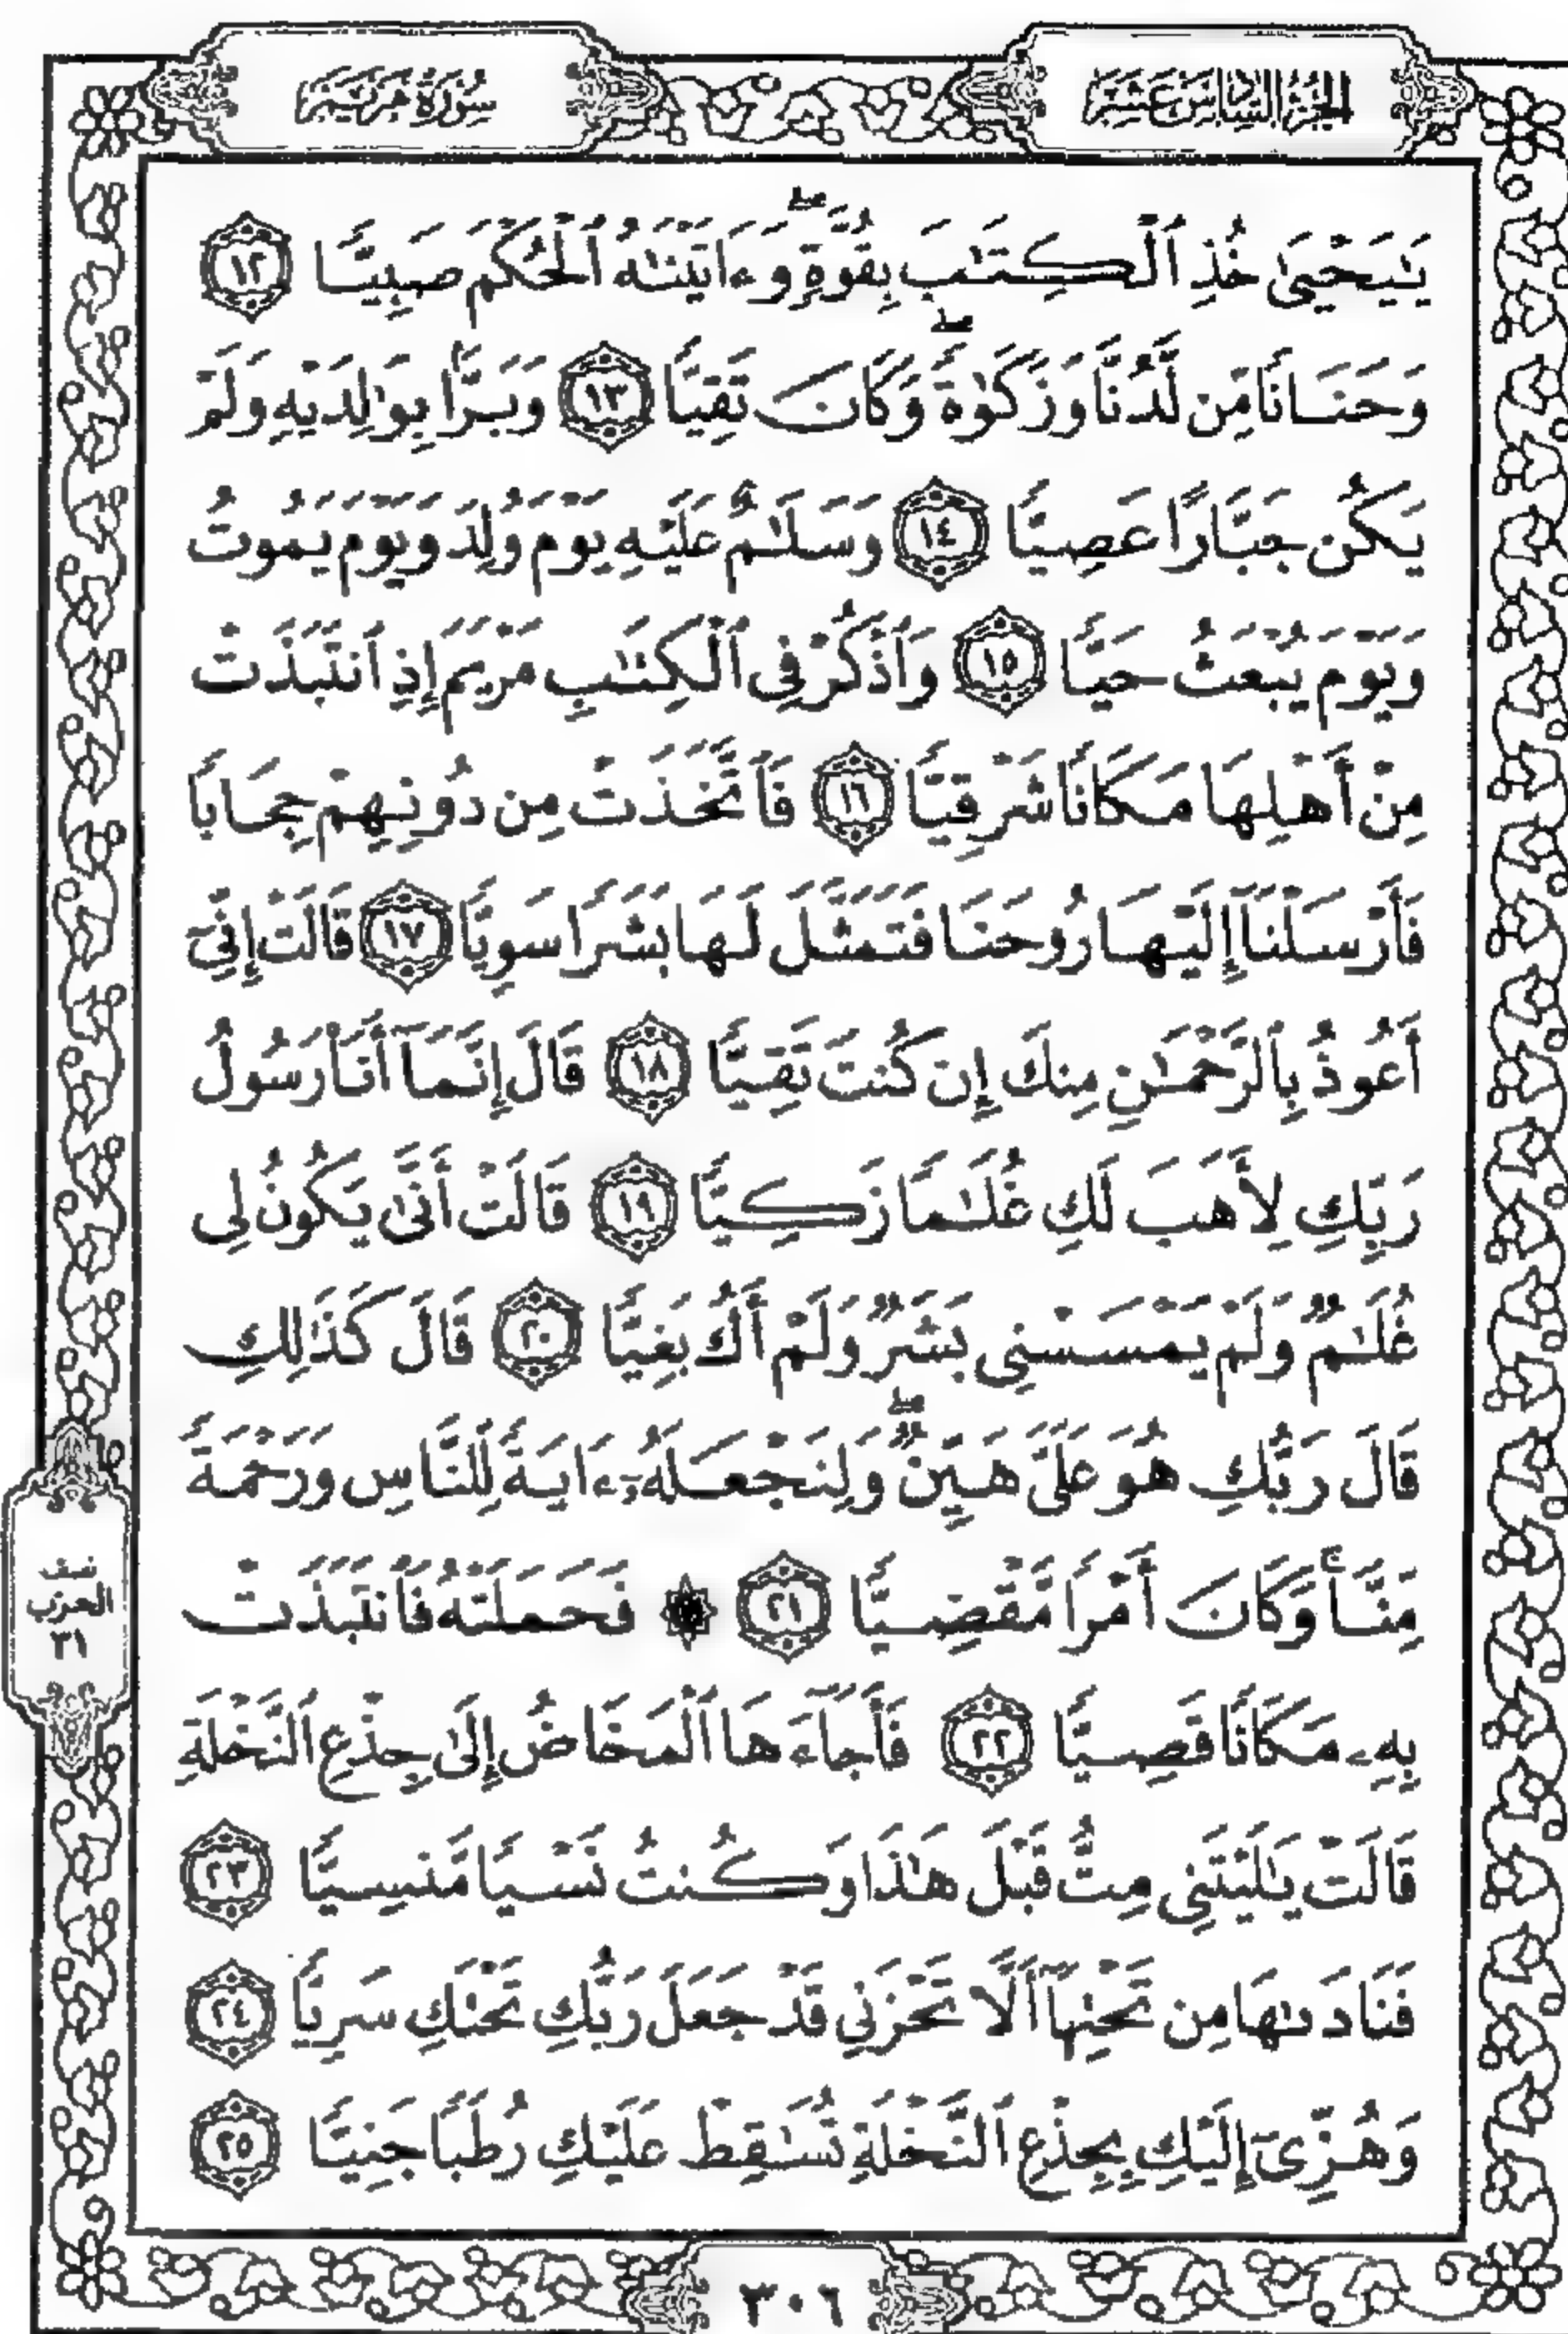 الجزء السادس عشر
سورة مريم
يَٰيَحْيَىٰ خُذِ ٱلْكِتَٰبَ بِقُوَّةٍۖ وَءَاتَيْنَٰهُ ٱلْحُكْمَ صَبِيًّا ١٢
وَحَنَانًا مِّن لَّدُنَّا وَزَكَوٰةًۖ وَكَانَ تَقِيًّا ١٣ وَبَرًّۢا بِوَٰلِدَيْهِ وَلَمْ
يَكُن جَبَّارًا عَصِيًّا ١٤ وَسَلَٰمٌ عَلَيْهِ يَوْمَ وُلِدَ وَيَوْمَ يَمُوتُ
وَيَوْمَ يُبْعَثُ حَيًّا ١٥ وَٱذْكُرْ فِى ٱلْكِتَٰبِ مَرْيَمَ إِذِ ٱنتَبَذَتْ
مِنْ أَهْلِهَا مَكَانًا شَرْقِيًّا ١٦ فَٱتَّخَذَتْ مِن دُونِهِمْ حِجَابًا
فَأَرْسَلْنَآ إِلَيْهَا رُوحَنَا فَتَمَثَّلَ لَهَا بَشَرًا سَوِيًّا ١٧ قَالَتْ إِنِّىٓ
أَعُوذُ بِٱلرَّحْمَٰنِ مِنكَ إِن كُنتَ تَقِيًّا ١٨ قَالَ إِنَّمَآ أَنَا۠ رَسُولُ
رَبِّكِ لِأَهَبَ لَكِ غُلَٰمًا زَكِيًّا ١٩ قَالَتْ أَنَّىٰ يَكُونُ لِى
غُلَٰمٌ وَلَمْ يَمْسَسْنِى بَشَرٌ وَلَمْ أَكُ بَغِيًّا ٢٠ قَالَ كَذَٰلِكِ
قَالَ رَبُّكِ هُوَ عَلَىَّ هَيِّنٌۖ وَلِنَجْعَلَهُۥٓ ءَايَةً لِّلنَّاسِ وَرَحْمَةً
مِّنَّاۚ وَكَانَ أَمْرًا مَّقْضِيًّا ٢١ ۞ فَحَمَلَتْهُ فَٱنتَبَذَتْ
بِهِۦ مَكَانًا قَصِيًّا ٢٢ فَأَجَآءَهَا ٱلْمَخَاضُ إِلَىٰ جِذْعِ ٱلنَّخْلَةِ
قَالَتْ يَٰلَيْتَنِى مِتُّ قَبْلَ هَٰذَا وَكُنتُ نَسْيًا مَّنسِيًّا ٢٣
فَنَادَىٰهَا مِن تَحْتِهَآ أَلَّا تَحْزَنِى قَدْ جَعَلَ رَبُّكِ تَحْتَكِ سَرِيًّا ٢٤
وَهُزِّىٓ إِلَيْكِ بِجِذْعِ ٱلنَّخْلَةِ تُسَٰقِطْ عَلَيْكِ رُطَبًا جَنِيًّا ٢٥
نصف
الحزب
٣١
٣٠٦